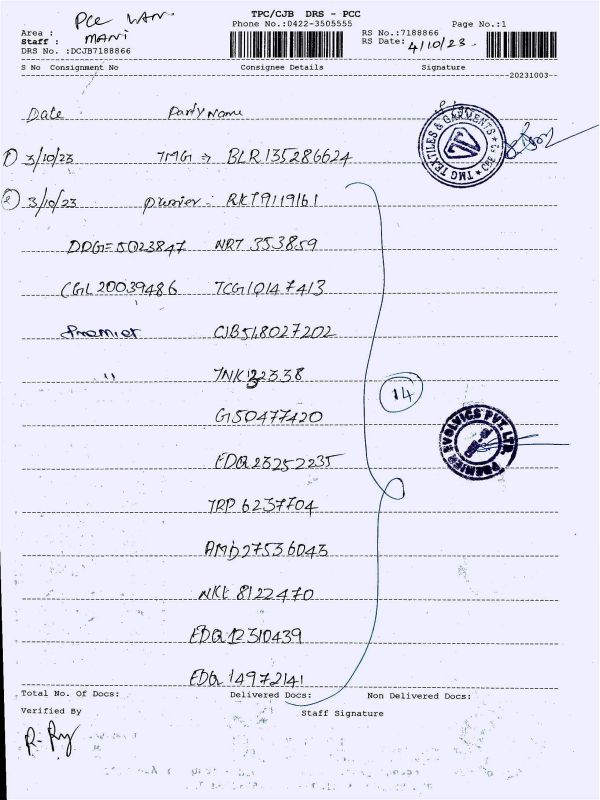 TPC/CJB DRS - PCC
Phone No.:0422-3505555 Page No.:1
Area : PCC
Staff : MANI
DRS No. :DCJB7188866
RS No.:7188866
RS Date: 4/10/23
S No Consignment No Consignee Details Signature
20231003
Date Party Name
1) 3/10/23 TMG → BLR 135286624
TMG TEXTILES & GARMENTS
2) 3/10/23 RKT9119161
5023847 NRT 353859
CGL 20039486 TCG10147413
Premier CJB518027202
〃 TNK32338
G50477420
EDQ23252235
14
PREMIER EVOLVICS PVT. LTD.
TRP 6237704
AMD27536043
NKL 8122470
EDQ12310439
EDQ 14972141
Total No. Of Docs: Delivered Docs: Non Delivered Docs:
Verified By Staff Signature